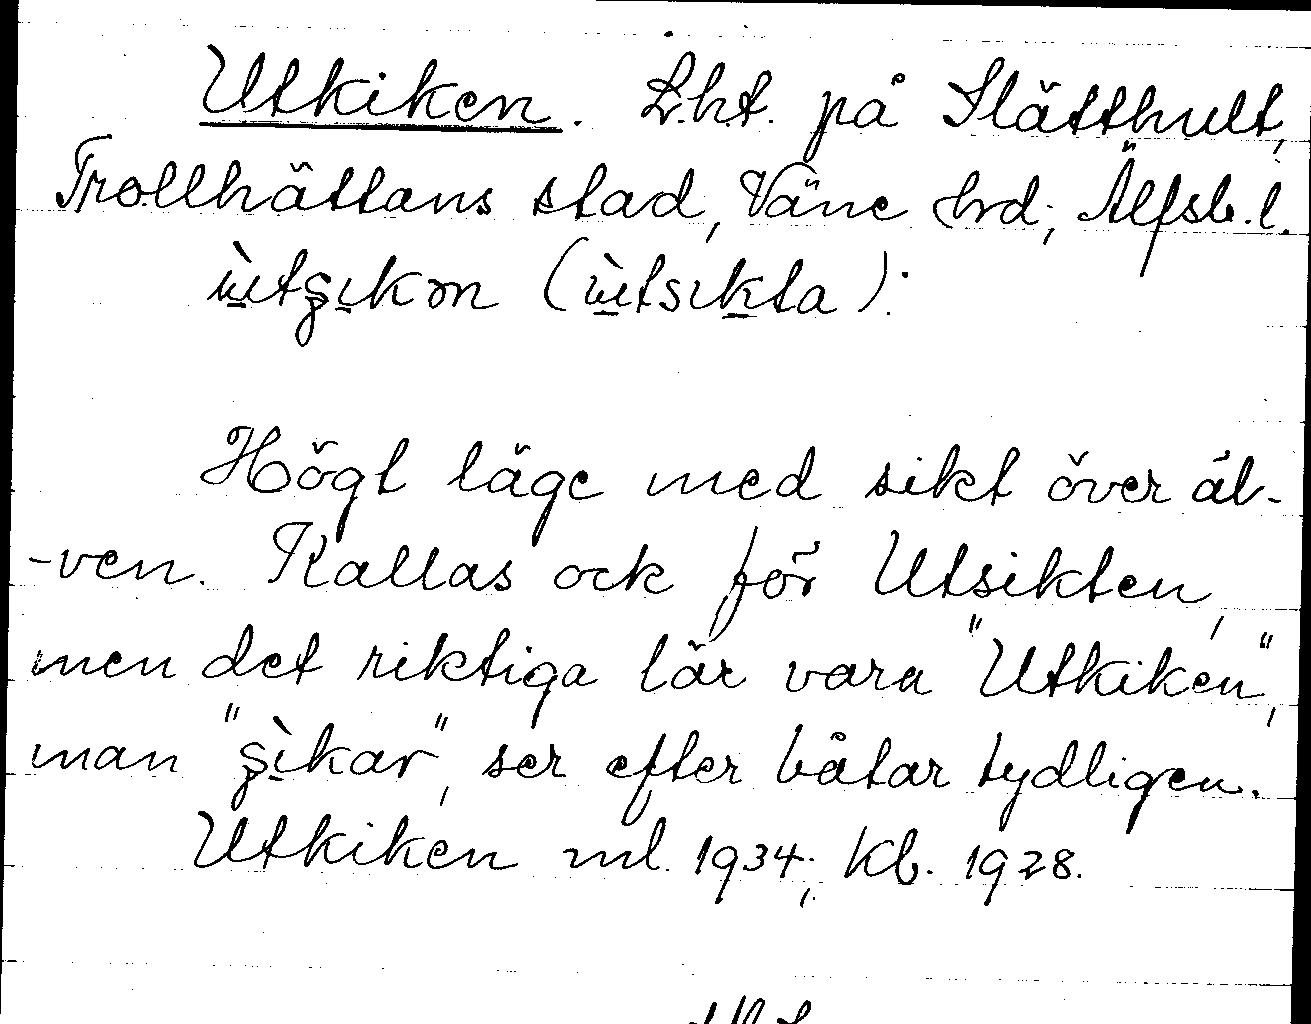 Utkiken. Lht. på Slätthult,
Trollhättans stad, Väne hrd; Älfsb. l.
ùtşıkən (ùtsıkta).
Högt läge med sikt över äl-
-ven. Kallas ock för Utsikten,
men det riktiga lär vara "Utkiken",
man "şìkar", ser efter båtar tydligen.
Utkiken ml. 1934; Kb. 1928.